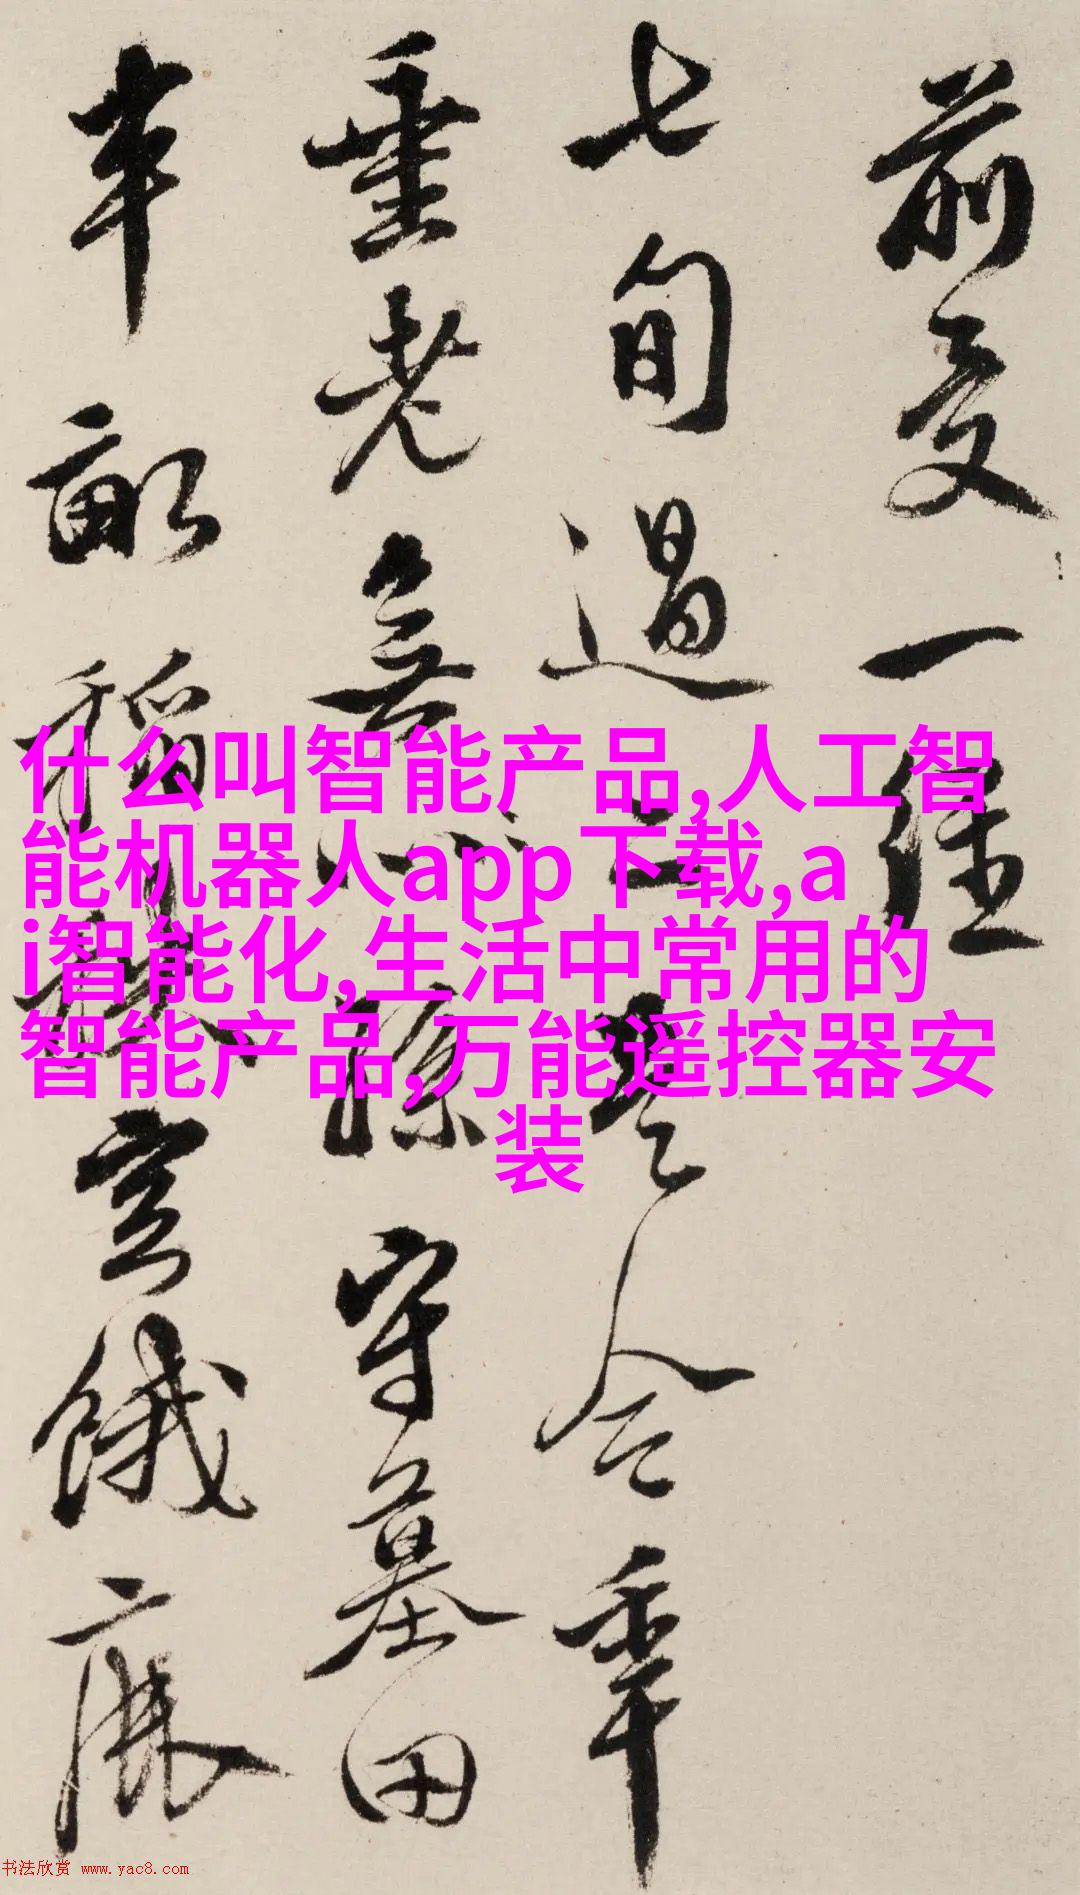 前受一經
七旬過二是今年
垂老無孫守墓田
半畝稻粱空餓
什么叫智能产品,人工智
能机器人app下载,a
i智能化,生活中常用的
智能产品,万能遥控器安
装
书法欣赏 www.yac8.com